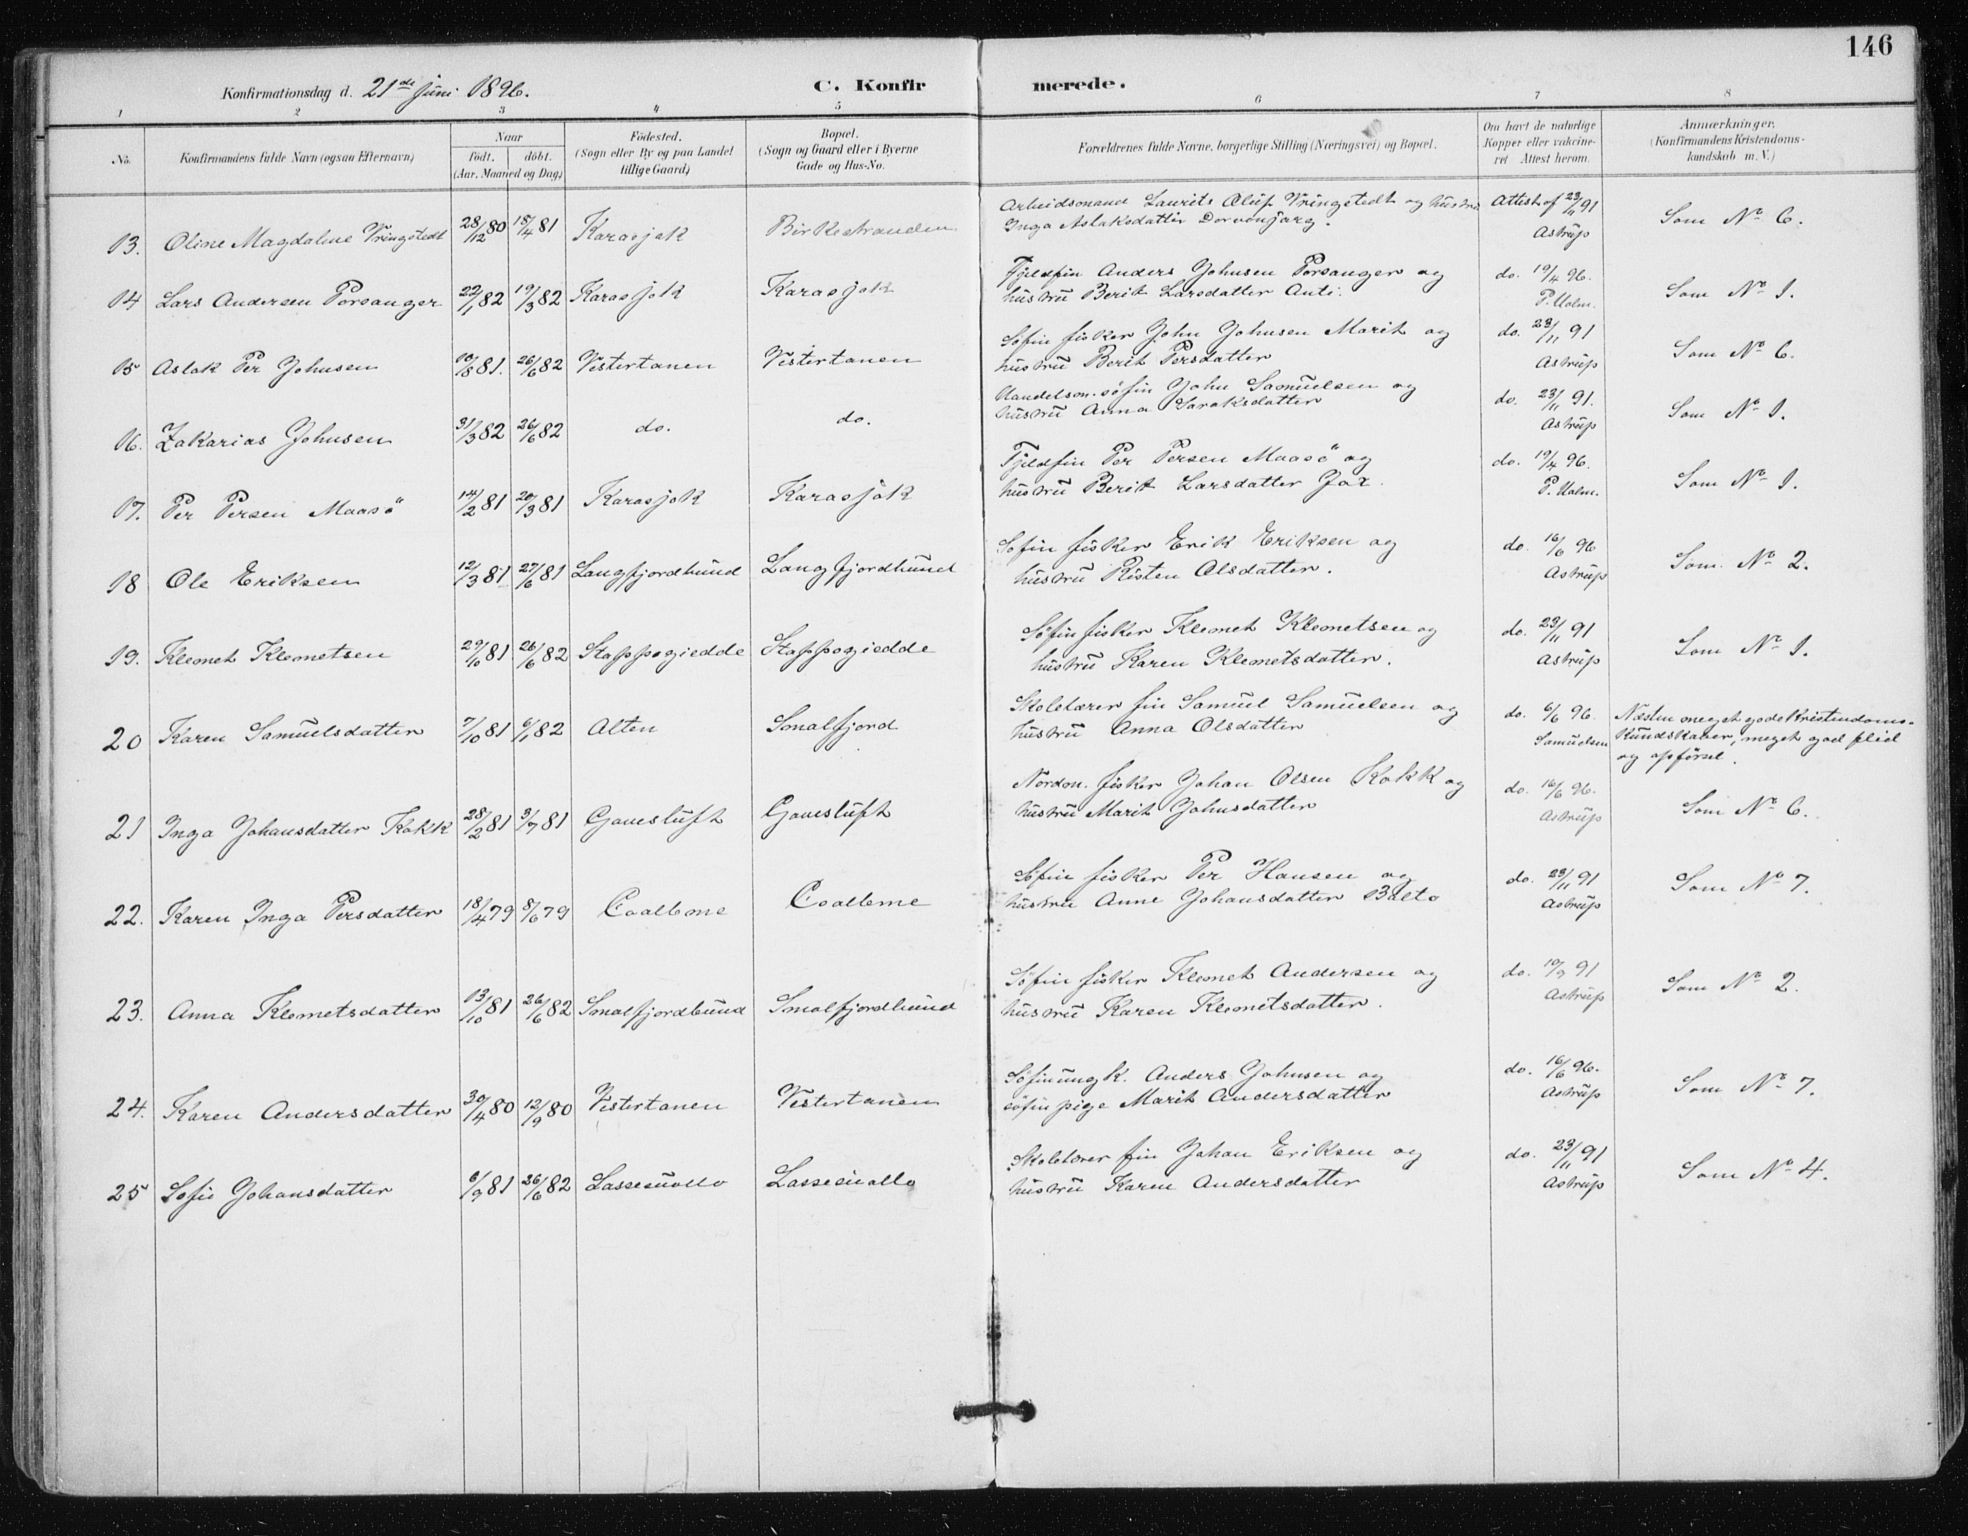 146
Konfirmationsdag d. 21de juni 1896. C. Konfirmerede.
1 2 3 4 5 6 7 8
No. Konfirmandens fulde Navn (ogsaa Efternavn) Naar födt. döbt. (Aar, Maaned og Dag) Födested. (Sogn eller By og paa Landet tillige Gaard) Bopæl. (Sogn og Gaard eller i Byerne Gade og Hus-No. Forældrenes fulde Navne, borgerlige Stilling (Næringsvei) og Bopæl. Om havt de naturlige Kopper eller vakcineret Attest herom. Anmærkninger. (Konfirmandens Kristendomskundskab m. V.)
13. Oline Magdalene Vringstedt 28/12 80 18/4 81 Karasjok Birkestranden Arbeidsmand Laurits Oluf Vringstedt og hustru Attest af 23/11 91 Som No 6.
Inga Aslaksdatter Dorvonjarg. Astrup
14 Lars Andersen Porsanger 22/1 82 19/3 82 Karasjok Karasjok Fjeldfin Anders Johnsen Porsanger og do. 19/4 96. Som No 1.
hustru Berit Larsdatter Anti. P. Holm.
15 Aslak Per Johnsen 10/8 81. 26/6 82 Vestertanen Vestertanen Søfin fisker John Johnsen Marit og do. 23/11 91 Som No 6.
hustru Berit Persdatter Astrup
16. Zakarias Johnsen 31/3 82 26/6 82 do. do. Handelsm. søfin John Samuelsen og do. 23/11 91. Som No 1.
hustru Anna Saraksdatter Astrup
17. Per Persen Maasö 14/2 81 20/3 81 Karasjok Karasjok Fjeldfin Per Persen Maasö og do. 19/4 96. Som No 1.
hustru Berit Larsdatter Jox. P. Holm.
18 Ole Eriksen 12/3 81 27/6 81 Langfjordbund Langfjordbund Søfin fisker Erik Eriksen og do. 16/6 96 Som No 2.
hustru Risten Olsdatter. Astrup
19. Klemet Klemetsen 29/10 81 26/6 82 Stappogiedde Stappogiedde Søfin fisker Klemet Klemetsen og do. 23/11 91 Som No 1.
hustru Karen Klemetsdatter. Astrup
20 Karen Samuelsdatter 7/10 81 6/1 82 Alten Smalfjord Skolelærer fin Samuel Samuelsen og do. 6/6 96. Næsten meget gode Kristendoms-
hustru Anna Olsdatter Samuelsen kundskaber, meget god flid
og opførsel.
21 Inga Johansdatter Kokk 28/2 81 3/7 81 Gavesluft Gavesluft Nordm. fisker Johan Olsen Kokk og do. 16/6 96. Som No 6.
hustru Marit Johnsdatter Astrup
22. Karen Inga Persdatter 18/4 79 8/6 79 Coalbme Coalbme Søfin fisker Per Hansen og do. 23/11 91 Som No 7.
hustru Anne Johansdatter Balto Astrup
23. Anna Klemetsdatter 13/10 81 26/6 82 Smalfjordbund Smalfjordbund Søfin fisker Klemet Andersen og do. 19/9 91 Som No 2.
hustru Karen Klemetsdatter. Astrup
24. Karen Andersdatter 30/4 80 12/9 80 Vestertanen Vestertanen Søfinungk. Anders Johnsen og do. 16/6 96. Som No 7.
søfin pige Marit Andersdatter Astrup
25 Sofie Johansdatter 6/9 81 26/6 82 Lassesuollo Lassesuollo Skolelærer fin Johan Eriksen og do. 23/11 91 Som No 4.
hustru Karen Andersdatter Astrup